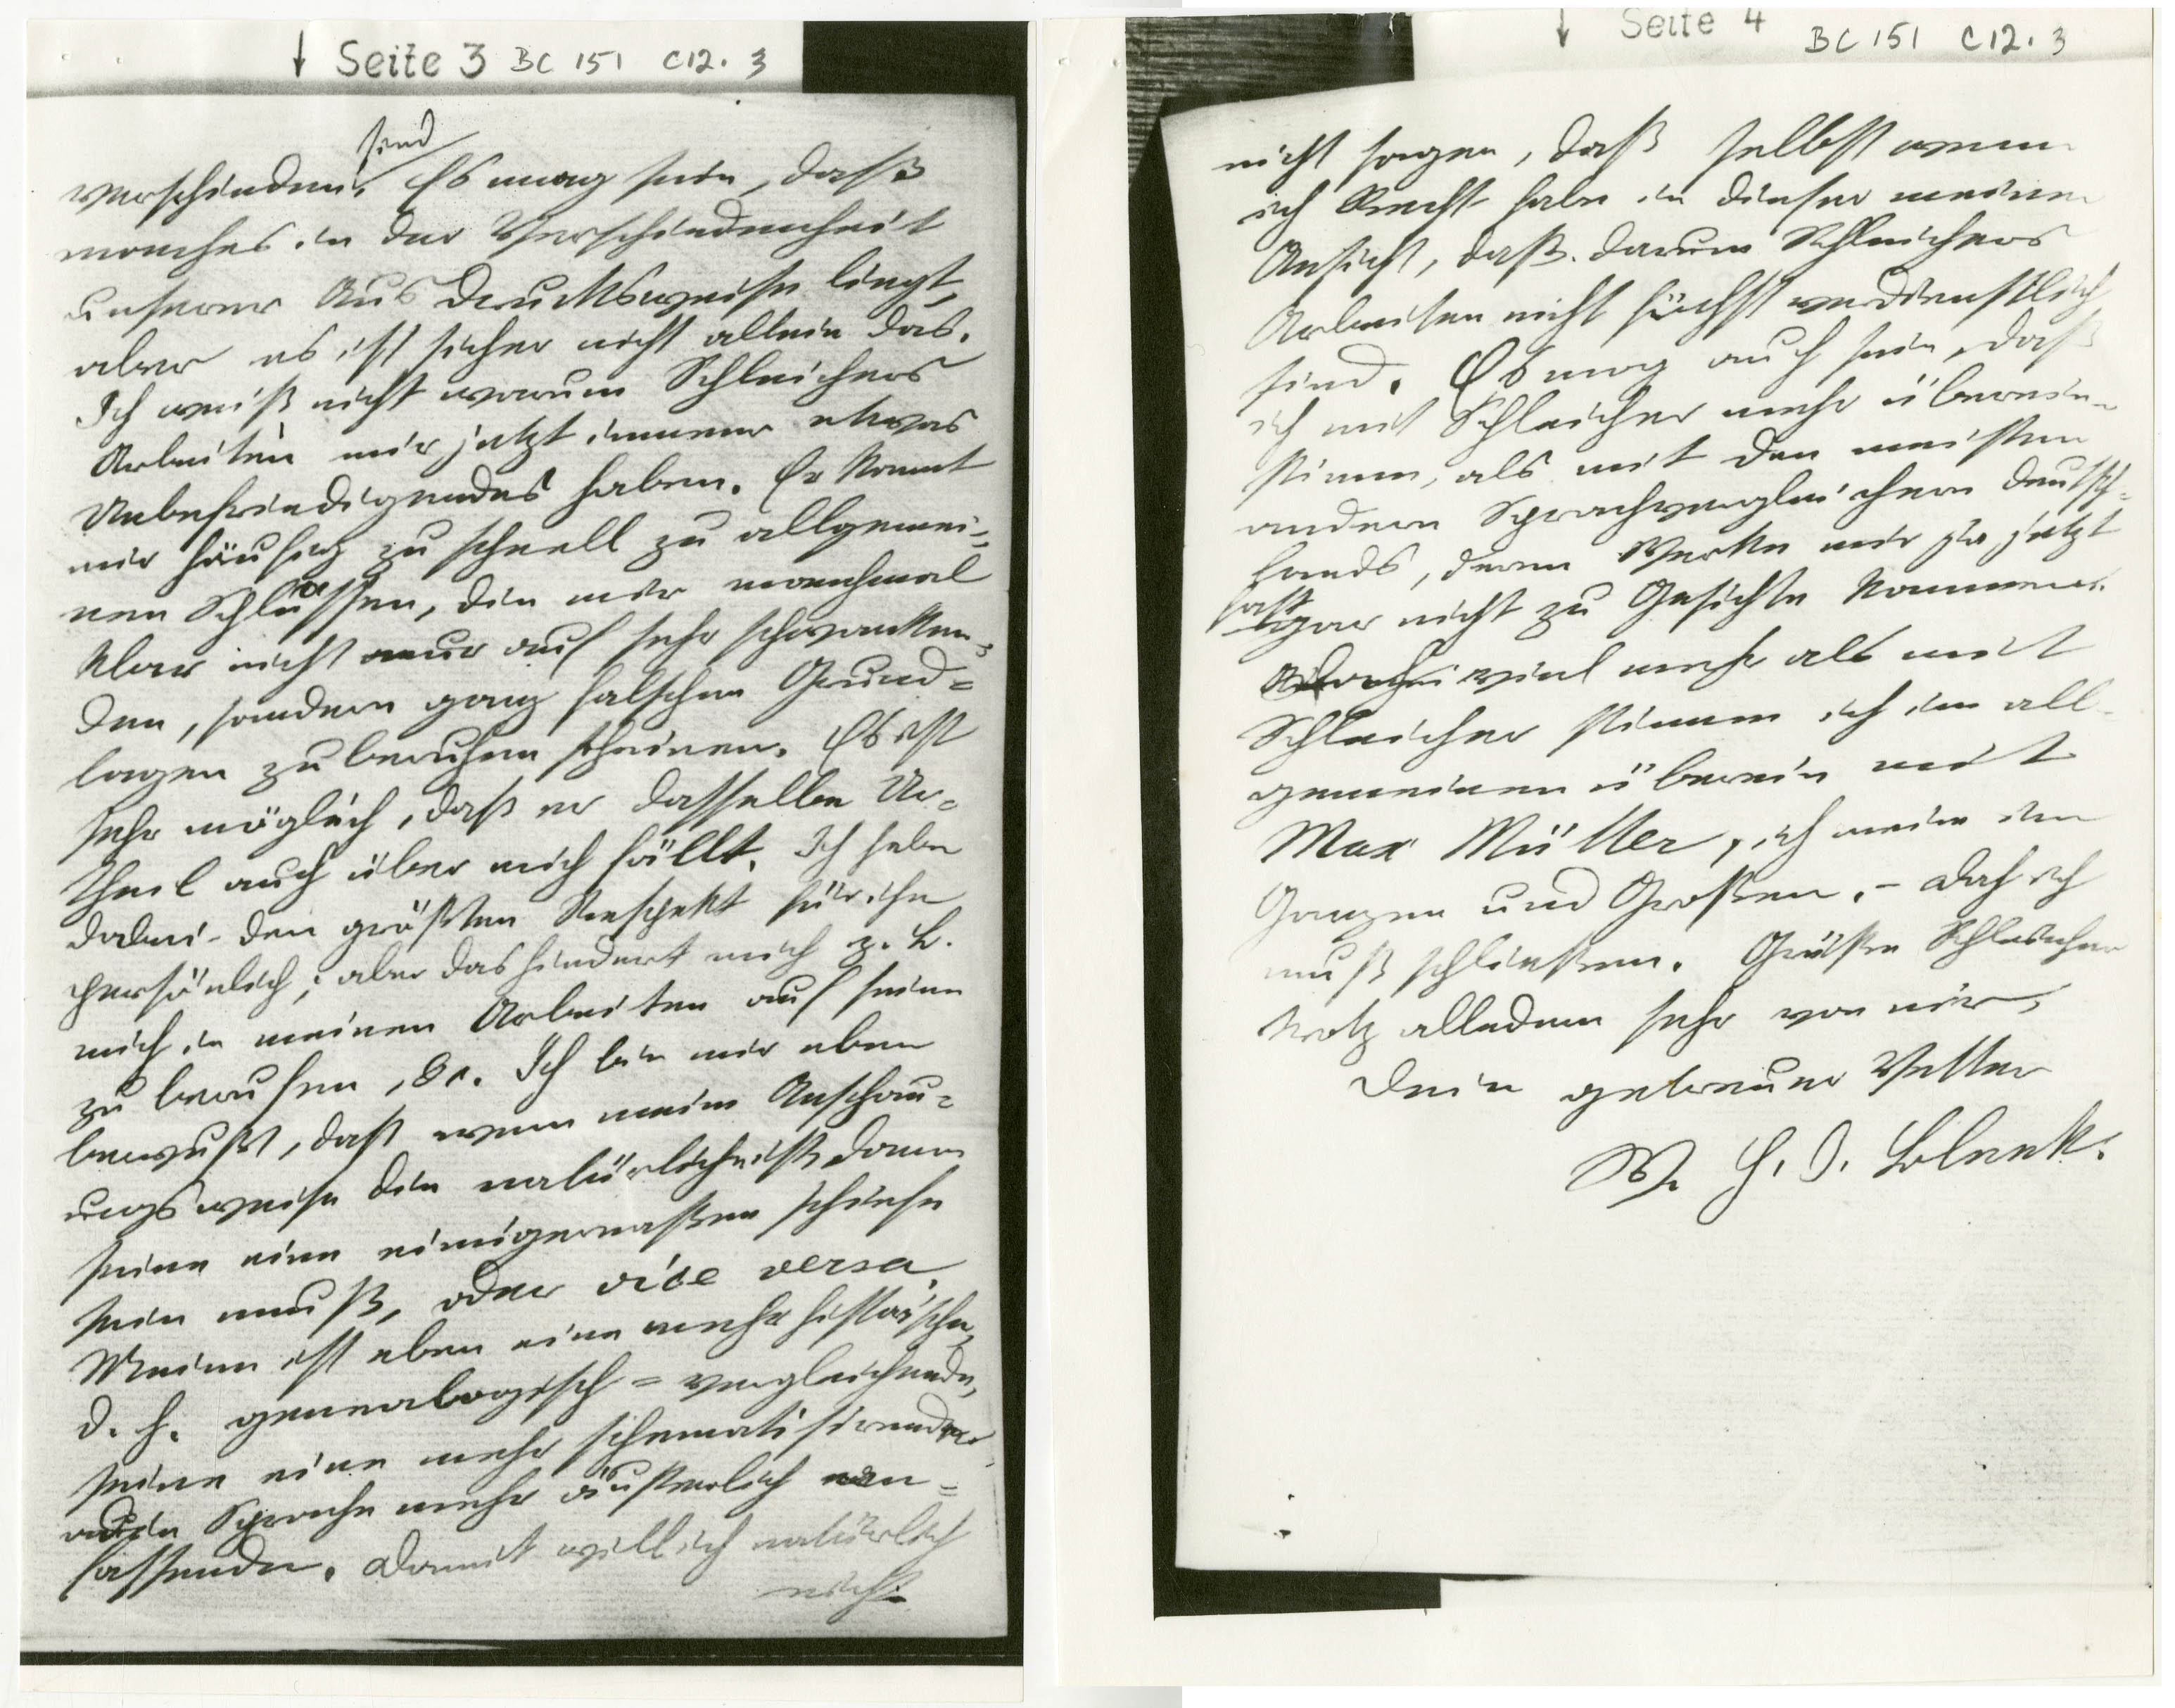 ↓ Seite 3 BC 151 C12. 3
sind
verschieden. Es mag sein, daß
manches in der Verschiedenheit
unserer Ausdrucksweise liegt,
aber es ist sicher nicht allein das.
Ich weiß nicht warum Schleichers
Arbeiten mir jetzt immer etwas
Unbefriedigendes haben. Er kommt
mir häufig zu schnell zu allgemei-
nen Schlüssen, die mir manchmal
klar nicht nur auf sehr schwanken-
den, sondern ganz falschen Grund=
lagen zu beruhen scheinen. Es ist
sehr möglich, daß er dasselbe Ur=
theil auch über mich fällt. Ich habe
dabei den größten Respekt für ihn
persönlich; aber das hindert mich z. B.
mich in meinen Arbeiten auf seine
zu berufen, &c. Ich bin mir eben
bewußt, daß wenn meine Anschau=
ungsweise die natürliche ist, dann
seine eine einigermaßen schiefe
sein muß, oder vice versa.
Meine ist eben eine mehr histor'sche,
d. h. genealogisch=vergleichende,
seine eine mehr schematisirende
die Sprache mehr äußerlich =
fassende. Damit will ich natürlich
nicht
↓ Seite 4 BC 151 C12. 3
nicht sagen, daß selbst wenn
ich Recht habe in dieser meiner
Ansicht, daß darum Schleichers
Arbeiten nicht höchst verdienstlich
sind. Es mag auch sein, daß
ich mit Schleicher mehr überein-
stimme, als mit den meisten
andern Sprachvergleichern Deutsch=
lands, deren Werke mir ja jetzt
fast gar nicht zu Gesichte kommen.
viel mehr als mit
Schleicher stimme ich im all-
gemeinen überein mit
Max Müller, ich meine im
Ganzen und Großen. – Doch ich
muß schließen. Grüße Schleicher
trotz alledem sehr von mir,
Dein getreuer Vetter
W. H. I. Bleek.